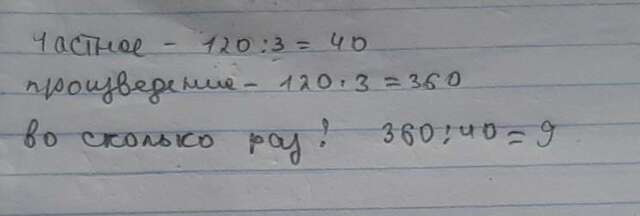 частное - 120:3 = 40
произведение - 120·3 = 360
во сколько раз? 360:40 = 9